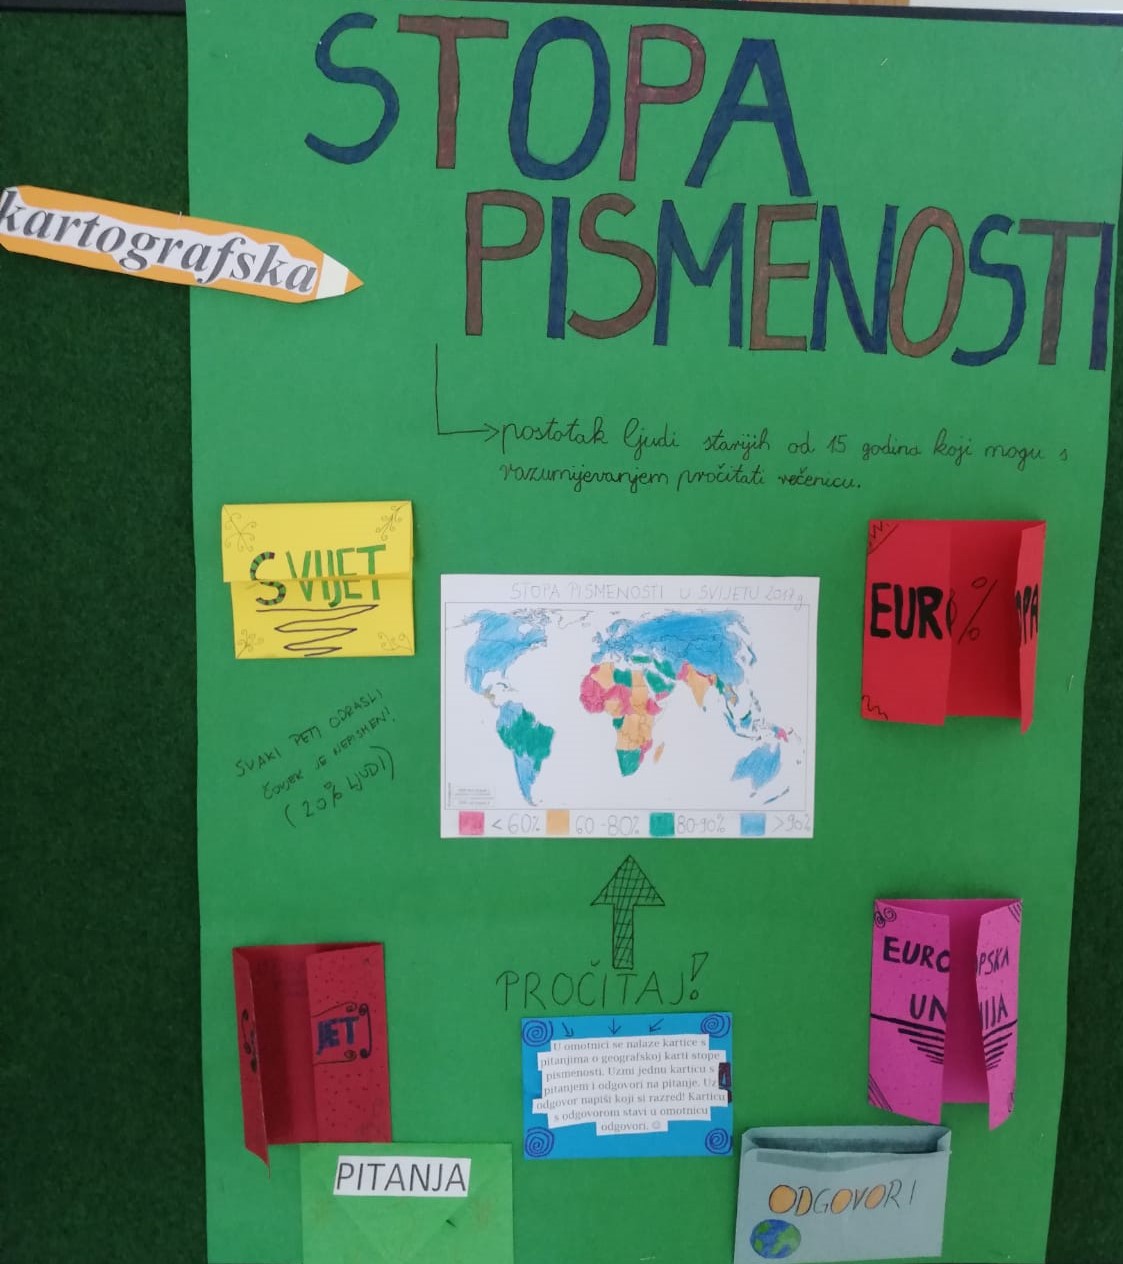 STOPA
PISMENOSTI
kartografska
postotak ljudi starijih od 15 godina koji mogu s
razumijevanjem pročitati rečenicu.
SVIJET
EUR % OPA
STOPA PISMENOSTI U SVIJETU 2017 g
SVAKI PETI ODRASLI
ČOVJEK JE NEPISMEN!
(20% LJUDI)
< 60% 60-80% 80-90% >90%
EUROPSKA
UNIJA
PROČITAJ!
JET
U omotnici se nalaze kartice s
pitanjima o geografskoj karti stope
pismenosti. Uzmi jednu karticu s
pitanjem i odgovori na pitanje. Uz
odgovor napiši koji si razred! Karticu
s odgovorom stavi u omotnicu
odgovori. ☺
PITANJA
ODGOVORI